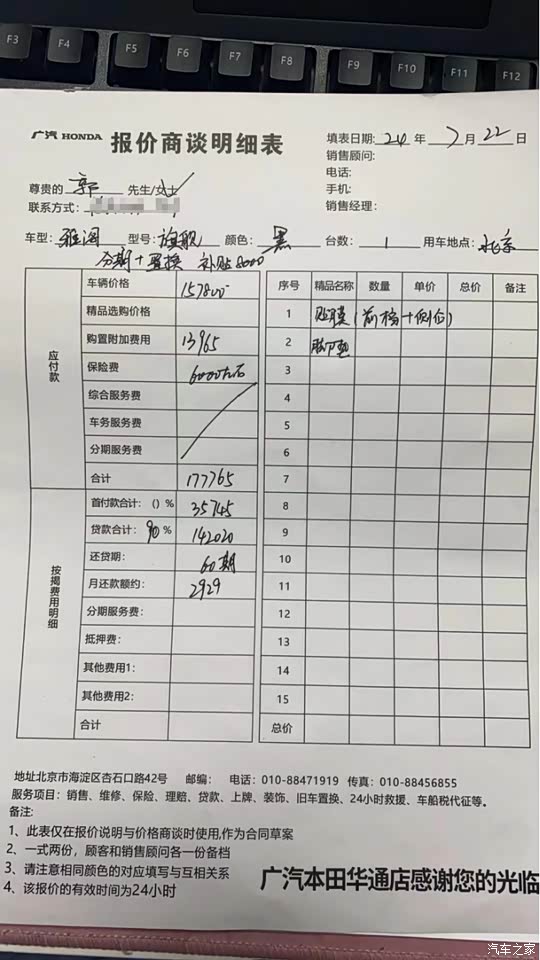 F3 F4 F5 F6 F7 F8 F9 F10 F11 F12
广汽 HONDA 报价商谈明细表
填表日期: 24 年 7 月 22 日
销售顾问:
电话:
手机:
销售经理:
尊贵的 郭 先生/女士
联系方式:
车型: 雅阁 型号: 旗舰 颜色: 黑 台数: 1 用车地点: 北京
分期+置换 补贴8000
应付款
车辆价格 157800
精品选购价格
购置附加费用 13965
保险费 6000左右
综合服务费
车务服务费
分期服务费
合计 177765
按揭费用明细
首付款合计: () % 35745
贷款合计: 90 % 142020
还贷期: 60期
月还款额约: 2929
分期服务费:
抵押费:
其他费用1:
其他费用2:
合计
序号 精品名称 数量 单价 总价 备注
1 贴膜(前档+侧后)
2 脚垫
3
4
5
6
7
8
9
10
11
12
13
14
15
总价
地址北京市海淀区杏石口路42号 邮编: 电话: 010-88471919 传真: 010-88456855
服务项目: 销售、维修、保险、理赔、贷款、上牌、装饰、旧车置换、24小时救援、车船税代征等。
备注:
1、此表仅在报价说明与价格商谈时使用,作为合同草案
2、一式两份，顾客和销售顾问各一份备档
3、请注意相同颜色的对应填写与互相关系
4、该报价的有效时间为24小时
广汽本田华通店感谢您的光临
汽车之家